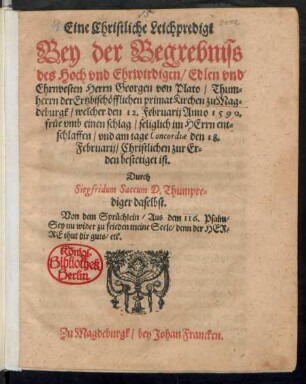 Eine Christliche Leichpredigt
Bey der Begrebniss
des Hoch vnd Ehrwirdigen / Edlen vnd
Ehrnvesten Herrn Georgen von Plato / Thum-
herrn der Ertzbischöfflichen primat Kirchen zu Mag-
deburgk / welcher den 12. Februarij Anno 1590.
früe vmb einen schlag / seliglich im HErrn ent-
schlaffen / vnd am tage Concordiæ den 18.
Februarij / Christlichen zur Er-
den bestetiget ist.
Durch
Siegfridum Saccum D. Thumpre-
diger daselbst.
Von dem Sprüchlein / Aus dem 116. Psalm /
Sey nu wider zu frieden meine Seele / denn der HER-
RE thut dir guts / etc.
Königl.
Bibliothek
Berlin
Zu Magdeburgk / bey Johan Francken.